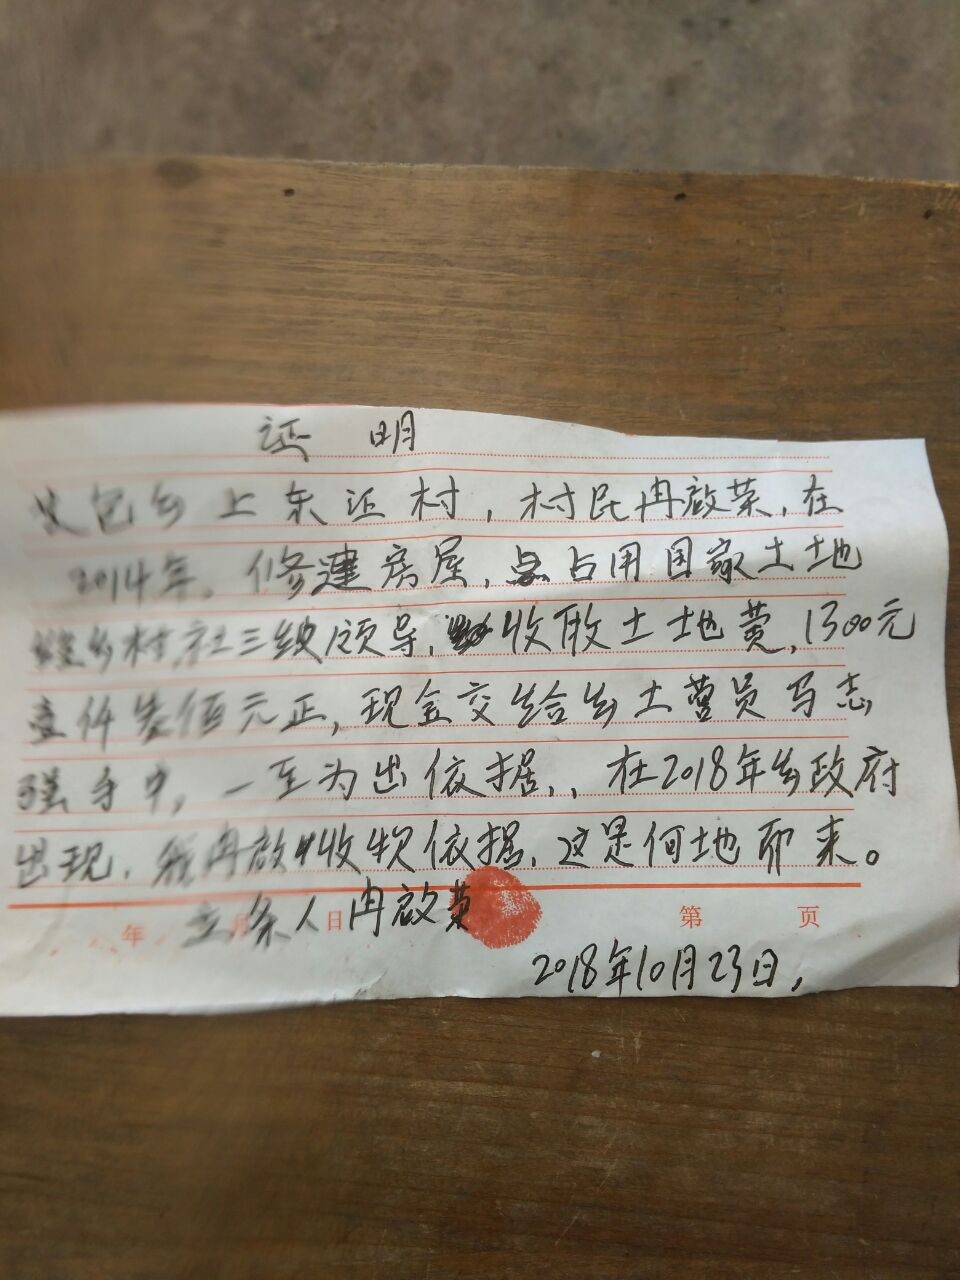 证 明
包乡上东证村，村民冉啟荣，在
2014年。修建房屋，占用国家土地
乡村社三级领导，收取土地费，1300元
壹仟叁佰元正，现金交给乡土营员马志
强手中，一至为出依据，，在2018年乡政府
出现，我冉啟收状依据，这是何地而来。
年 月 日 第 页
立条人冉啟荣
2018年10月23日，